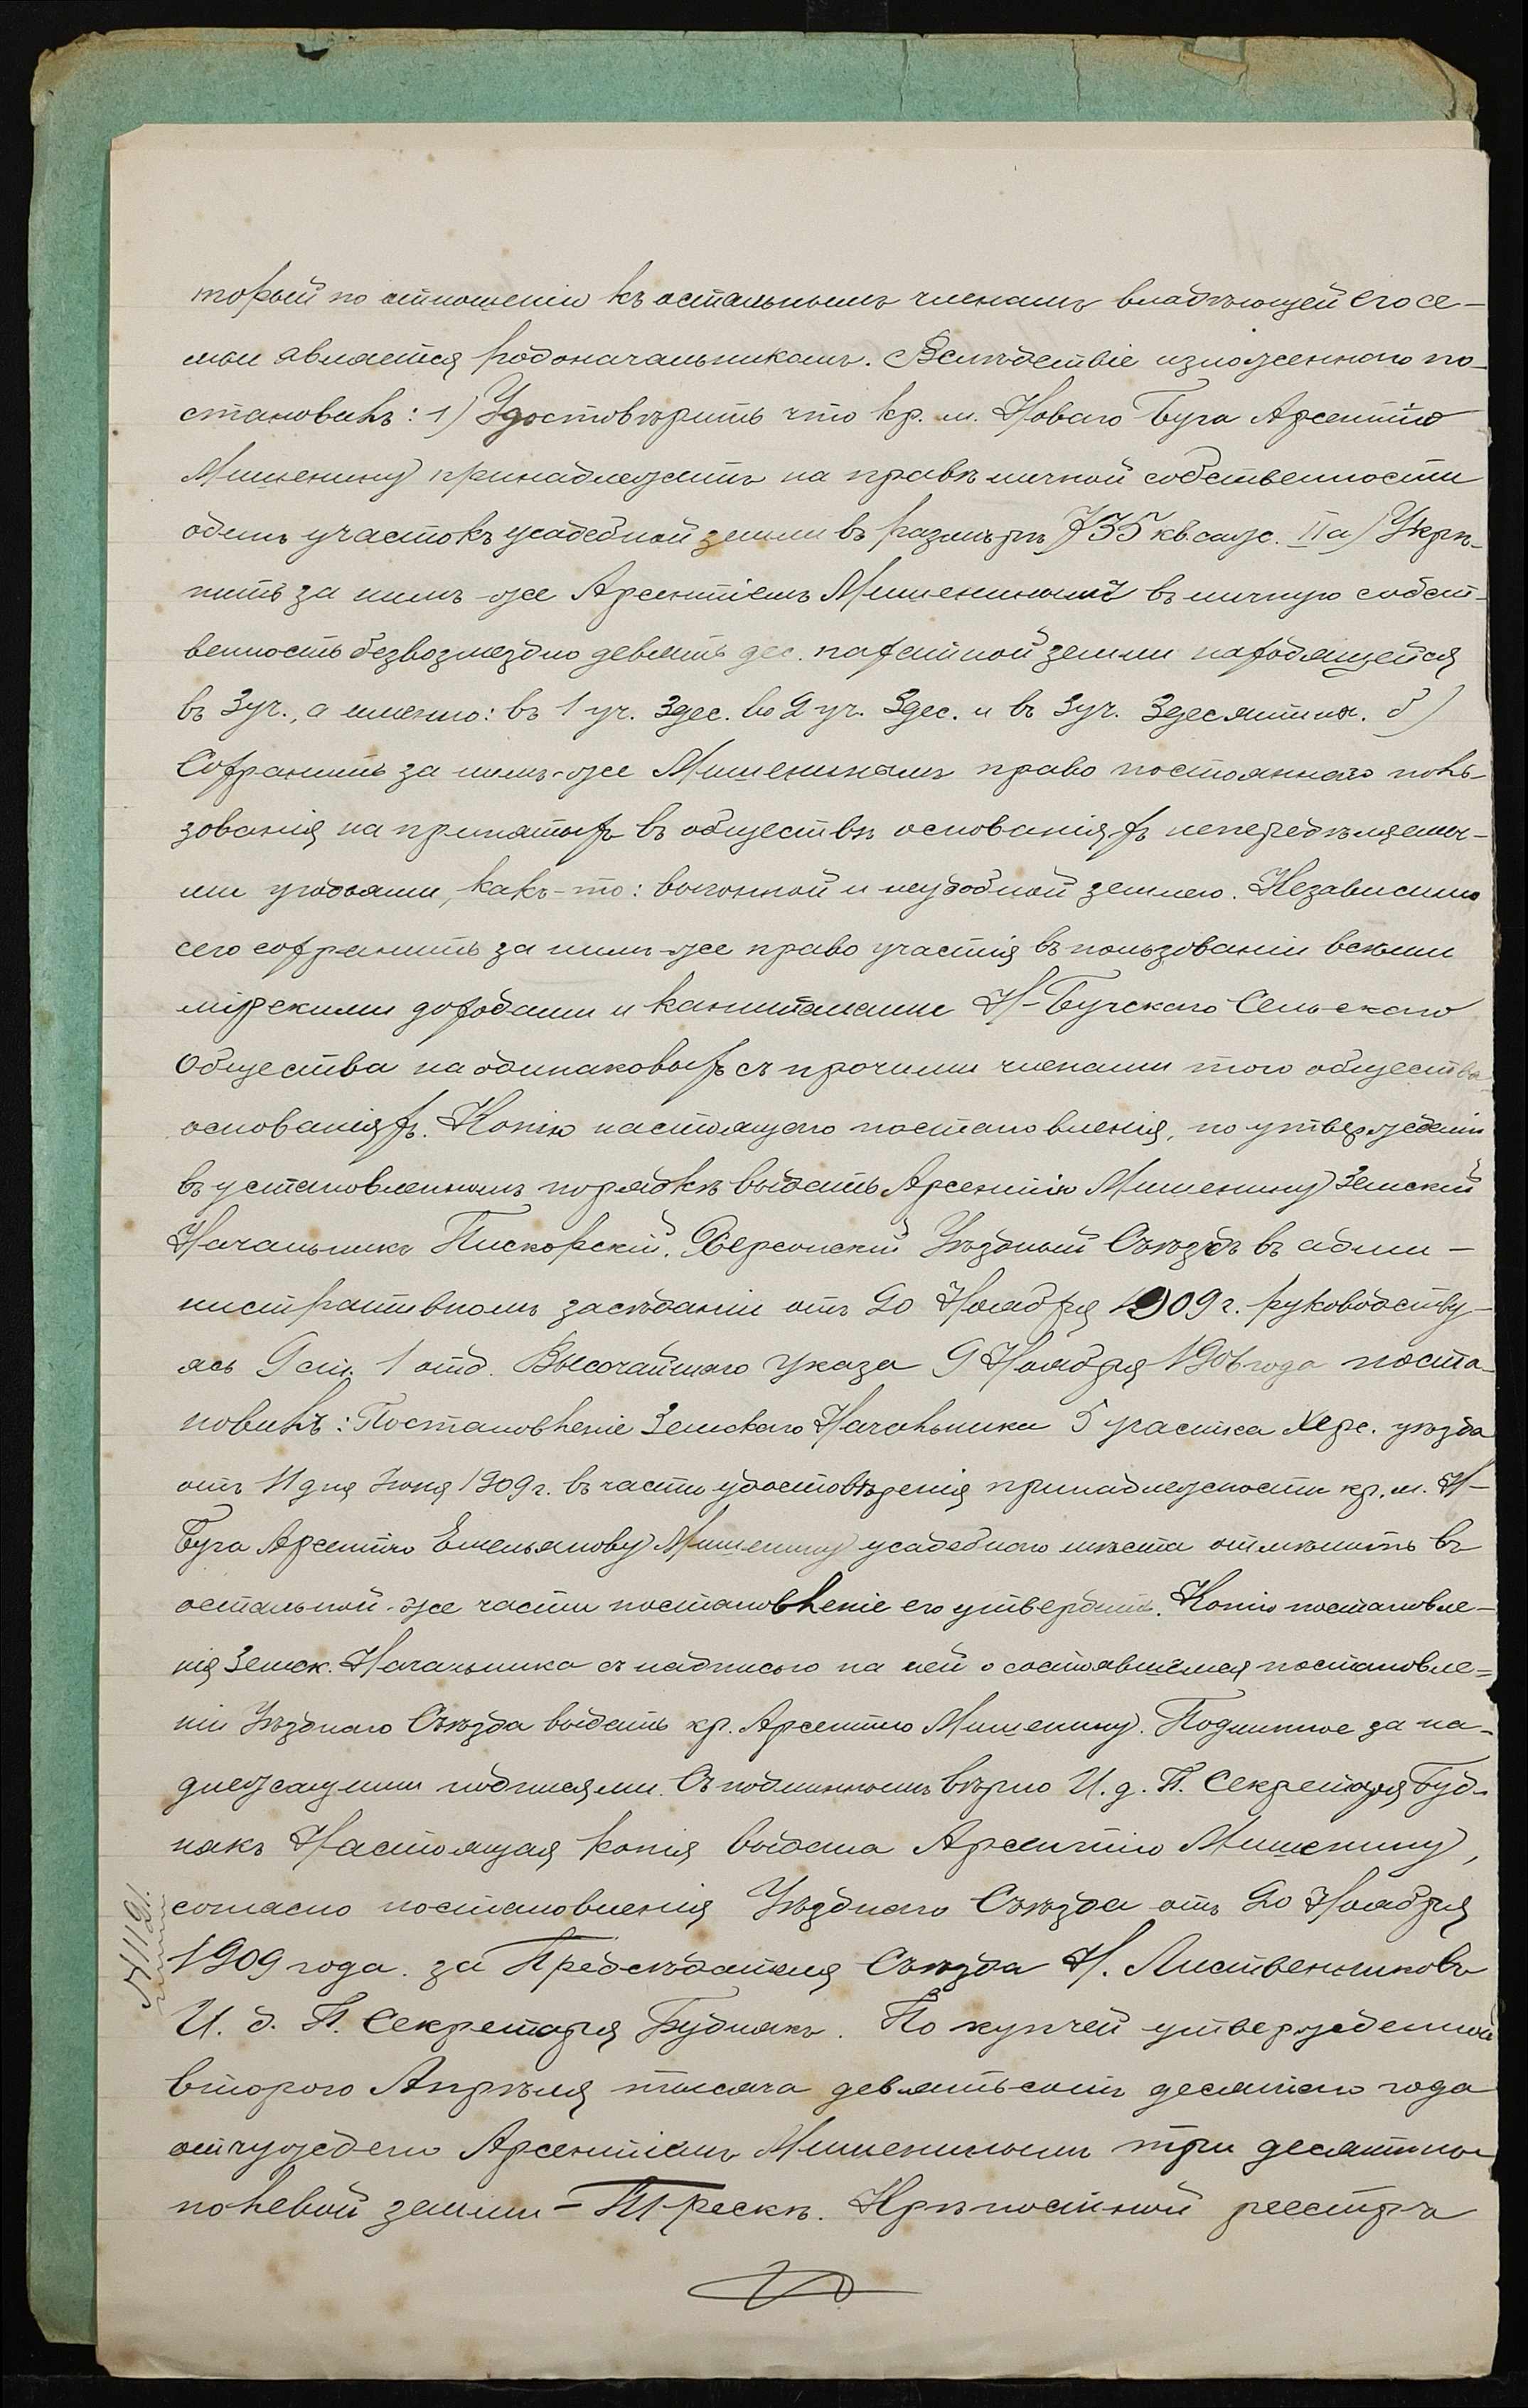 торый по отношенію къ остальнымъ членамъ владѣющей его се-
мьи является родоначальникомъ. Вслѣдствіе изложеннаго по-
становилъ: 1) Удостовѣрить что кр. м. Новаго Буга Арсентію
Мишенину принадлежитъ на правѣ личной собственности
одинъ участокъ усадебной земли въ размѣрѣ 735 кв. саж. II а) Укрѣ-
пить за нимъ-же Арсентіемъ Мишенинымъ въ личную собст-
венность безвозмездно девять дес. пахатной земли находящейся
въ 3 уч., а именно: въ 1 уч. 3 дес. во 2 уч. 3 дес. и въ 3 уч. 3 десятины. б)
Сохранить за нимъ-же Мишенинымъ право постояннаго поль-
зованія на принятыхъ въ обществѣ основаніяхъ непередѣляемы-
ми угодьями, какъ-то: выгонной и неудобной землею. Независимо
сего сохранить за нимъ-же право участія въ пользованіи всѣми
мірскими доходами и капиталами Н-Бугскаго Сельскаго
Общества на одинаковыхъ съ прочими членами того общества
основаніяхъ. Копію настоящаго постановленія, по утвержденіи
въ установленномъ порядкѣ выдать Арсентію Мишенину Земскій
Начальникъ Пискорскій. Херсонскій Уѣздный Съѣздъ въ адми-
нистративномъ засѣданіи отъ 20 Ноября 1909 г. руководству-
ясь 9 ст. 1 отд. Высочайшаго Указа 9 Ноября 1906 года поста-
новилъ: Постановленіе Земскаго Начальника 5 участка Херс. уѣзда
отъ 11 дня Іюня 1909 г. въ части удостовѣренія принадлежности кр. м. Н-
Буга Арсентію Емельянову Мишенину усадебнаго мѣста отмѣнить въ
остальной-же части постановленіе его утвердить. Копію постановле-
нія Земск. Начальника съ надписью на ней о состоявшемся постановле-
ніи Уѣзднаго Съѣзда выдать кр. Арсентію Мишенину. Подлинное за на-
длежащими подписями. Съ подлиннымъ вѣрно И. д. П. Секретаря Буд-
накъ Настоящая копія выдана Арсентію Мишенину,
согласно постановленія Уѣзднаго Съѣзда отъ 20 Ноября
1909 года. за Предсѣдателя Съѣзда Н. Лиственниковъ
И. д. П. Секретаря Буднакъ. По купчей утвержденной
второго Апрѣля тысяча девятьсотъ десятаго года
отчуждено Арсентіемъ Мишенинымъ три десятины
полевой земли – Крѣпостной реестръ